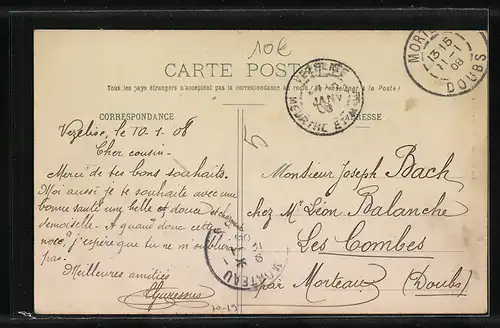 10€
CARTE POSTALE
Tous les pays étrangers n'acceptent pas la correspondance au recto (Se renseigner à la Poste)
CORRESPONDANCE
ADRESSE
Vezelise le 10-1-08
Cher cousin-
Merci de tes bons souhaits.
Moi aussi je te souhaite avec une
bonne santé une belle et douce et charmante
demoiselle. A quand donc cette
noce, j'espère que tu ne m'oublieras
pas.
Meilleures amitiés
Monsieur Joseph Bach
chez Mr Léon Balanche
Les Combes
par Morteau (Doubs)
VEZELISE
JANV
08
MEURTHE
13-15
11-1
08
DOUBS
MORTEAU